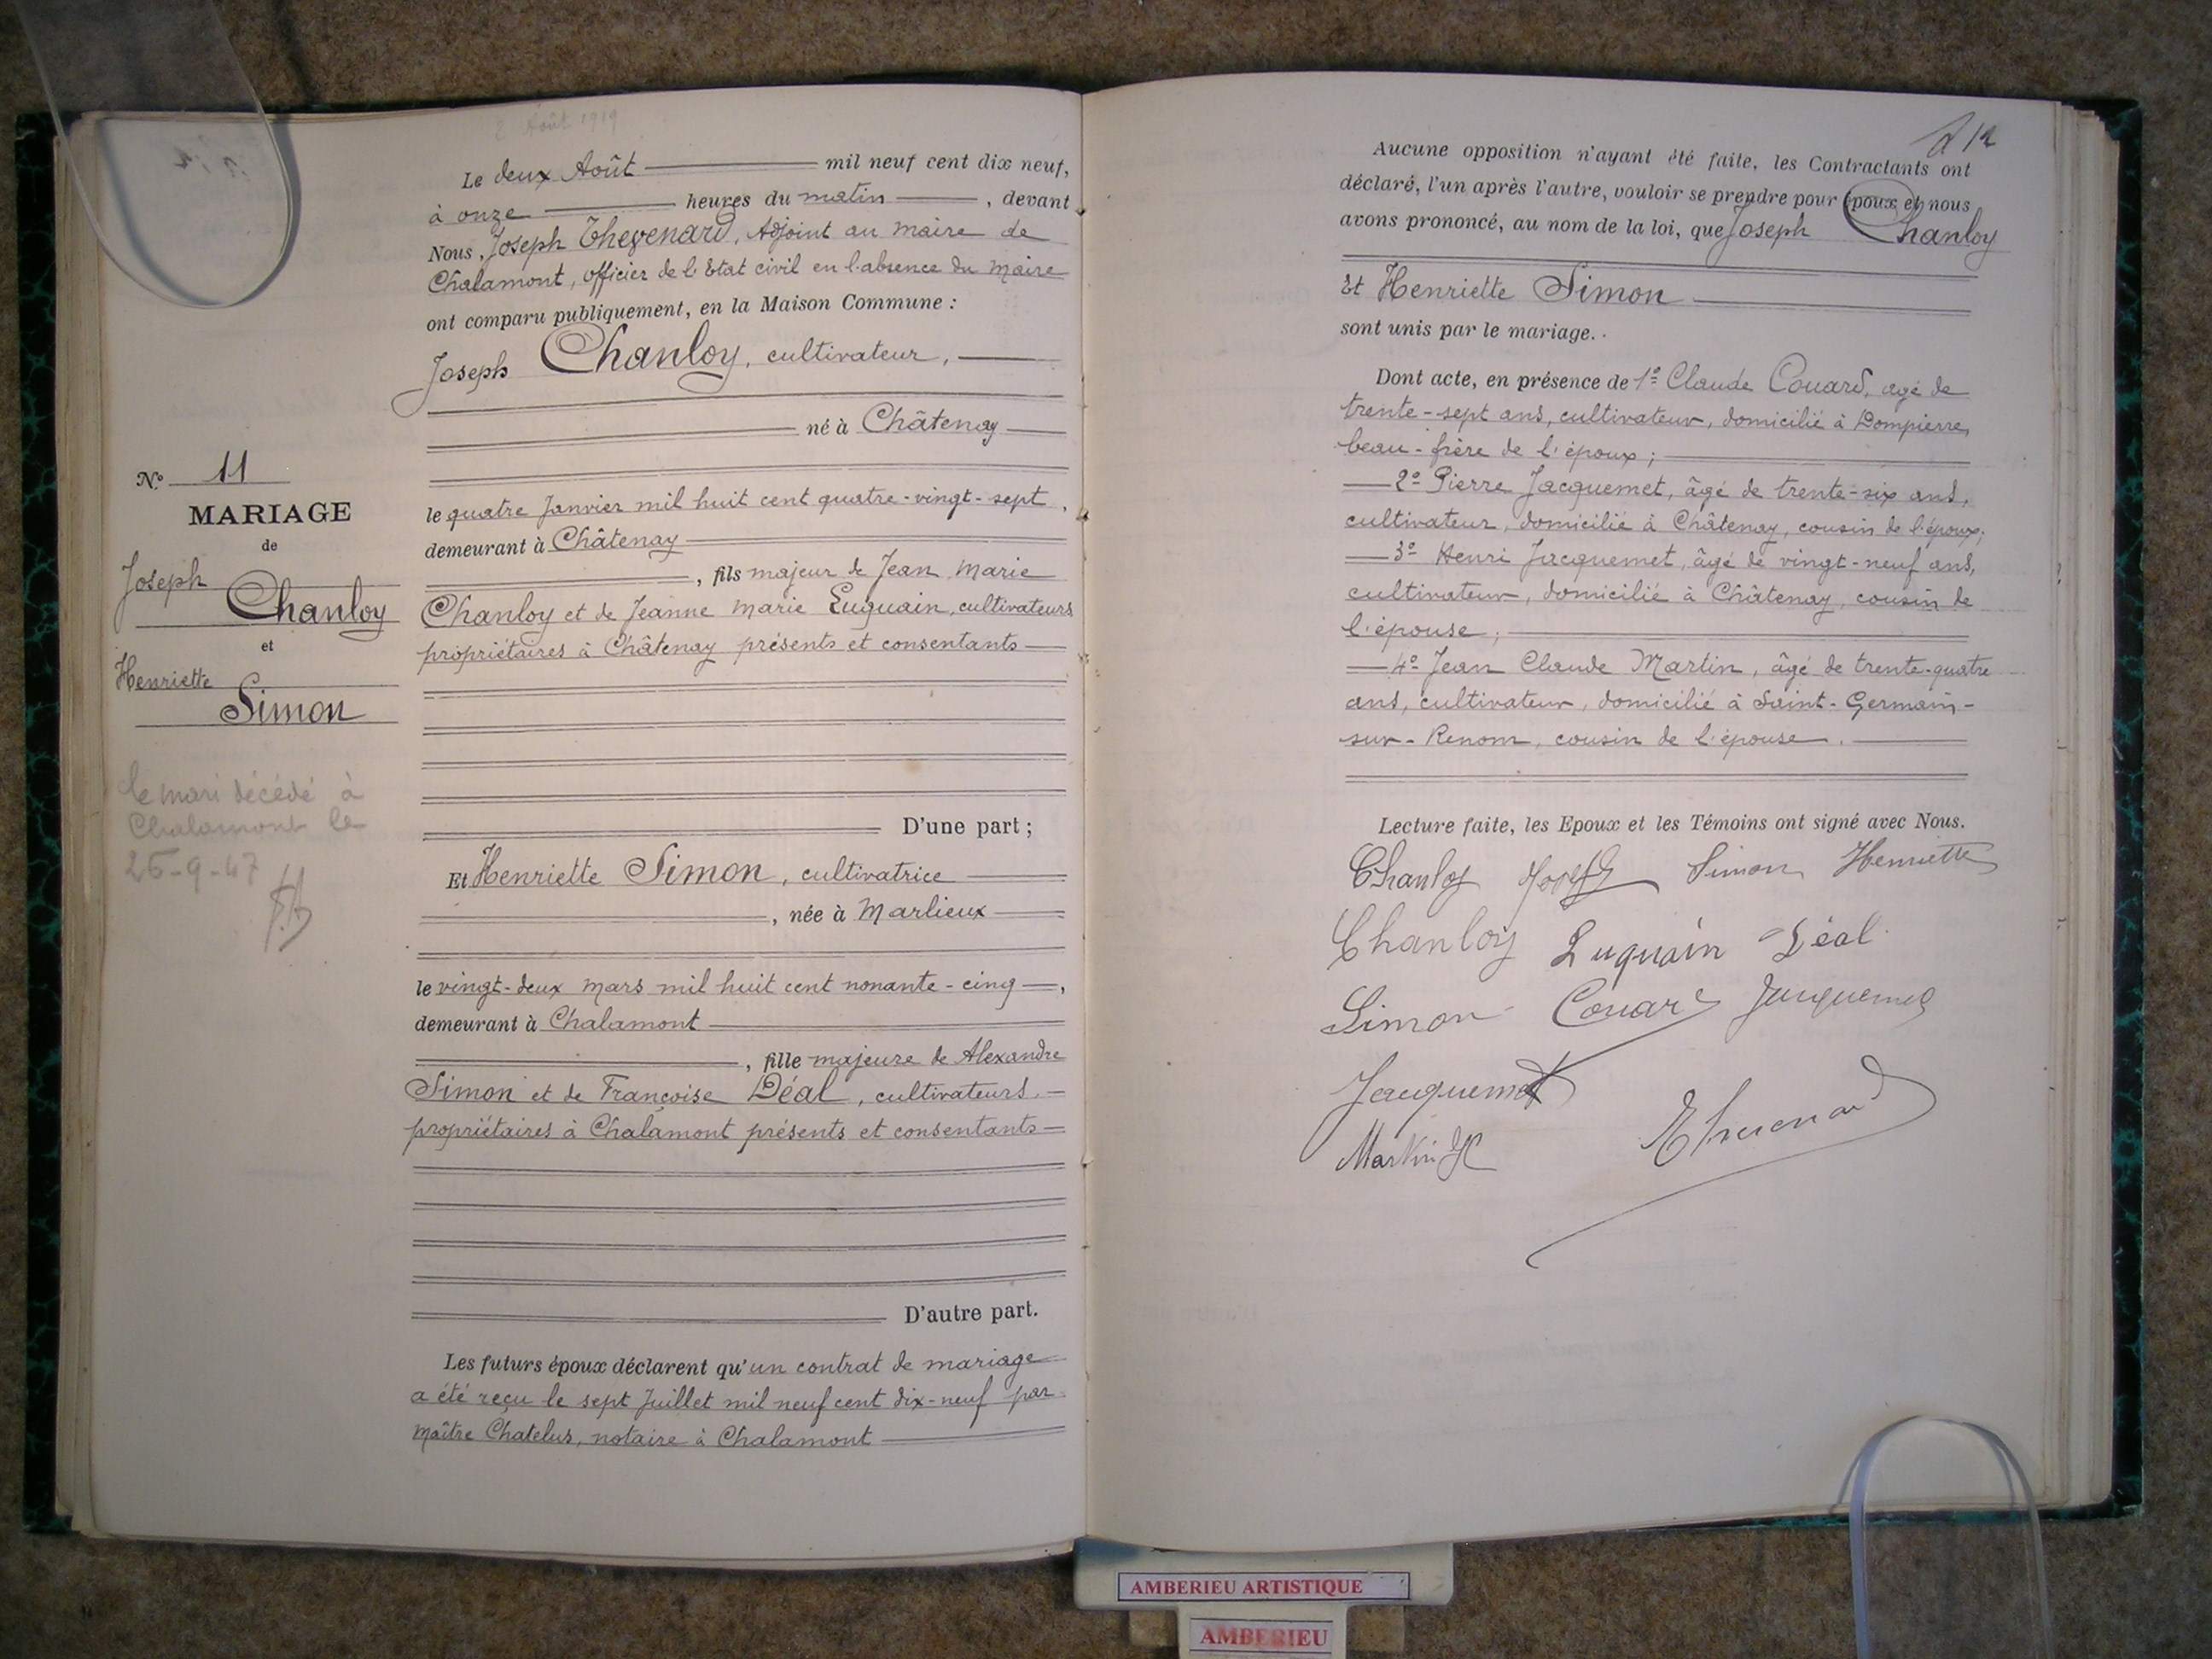 2 Août 1919
Le deux Août mil neuf cent dix neuf,
à onze heures du matin, devant
Nous, Joseph Thevenard, Adjoint au Maire de
Chalamont, officier de l'Etat civil en l'absence du Maire
ont comparu publiquement, en la Maison Commune :
Joseph Chanloy, cultivateur,
né à Châtenay
le quatre Janvier mil huit cent quatre-vingt-sept,
demeurant à Châtenay
, fils majeur de Jean Marie
Chanloy et de Jeanne Marie Luquain, cultivateurs
propriétaires à Châtenay présents et consentants
D'une part ;
Et Henriette Simon, cultivatrice
, née à Marlieux
le vingt-deux Mars mil huit cent nonante-cinq,
demeurant à Chalamont
, fille majeure de Alexandre
Simon et de Françoise Déal, cultivateurs
propriétaires à Chalamont présents et consentants
D'autre part.
Les futurs époux déclarent qu'un contrat de mariage
a été reçu le sept Juillet mil neuf cent dix-neuf par
Maître Chatelus, notaire à Chalamont
N° 11
MARIAGE
de
Joseph
Chanloy
et
Henriette
Simon
le mari décédé à
Chalamont le
25-9-47
12
Aucune opposition n'ayant été faite, les Contractants ont
déclaré, l'un après l'autre, vouloir se prendre pour époux et nous
avons prononcé, au nom de la loi, que Joseph Chanloy
Et Henriette Simon
sont unis par le mariage.
Dont acte, en présence de 1° Claude Couard, agé de
trente-sept ans, cultivateur, domicilié à Dompierre,
beau-frère de l'époux ;
2° Pierre Jacquemet, âgé de trente-six ans,
cultivateur, domicilié à Châtenay, cousin de l'époux;
3° Henri Jacquemet, âgé de vingt-neuf ans,
cultivateur, domicilié à Châtenay, cousin de
l'épouse ;
4° Jean Claude Martin, âgé de trente-quatre
ans, cultivateur, domicilié à Saint-Germain-
sur-Renom, cousin de l'épouse.
Lecture faite, les Epoux et les Témoins ont signé avec Nous.
Chanloy Joseph Simon Henriette
Chanloy Luquain Déal
Simon Couard Jacquemet
Jacquemet
Martin JC Thevenard
AMBERIEU ARTISTIQUE
AMBERIEU